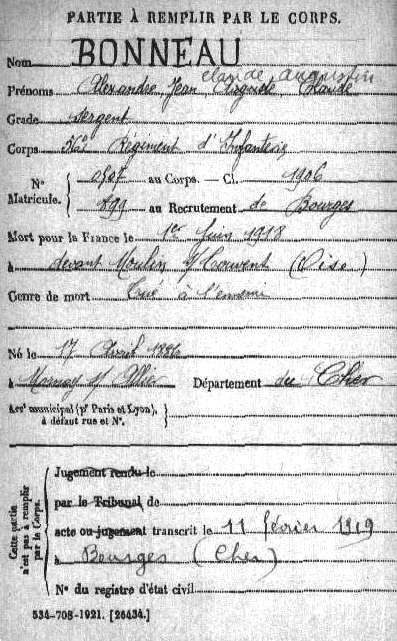 PARTIE À REMPLIR PAR LE CORPS.
Nom BONNEAU
claude augustin
Prénoms Alexandre, Jean Auguste Claude
Grade Sergent
Corps Régiment d'Infanterie
N° Matricule. { au Corps. — Cl. 1906
899 au Recrutement de Bourges
Mort pour la France le 1er Juin 1918
à devant Moulin s/ Touvent (Oise)
Genre de mort Tué à l'ennemi
Né le 17 Avril 1886
à Mornay s/ Allier Département du Cher
Arrt municipal (pr Paris et Lyon), }
à défaut rue et N°.
Cette partie n'est pas à remplir par le Corps.
Jugement rendu le
par le Tribunal de
acte ou jugement transcrit le 11 février 1919
à Bourges (Cher)
N° du registre d'état civil
534-708-1921. [26434.]